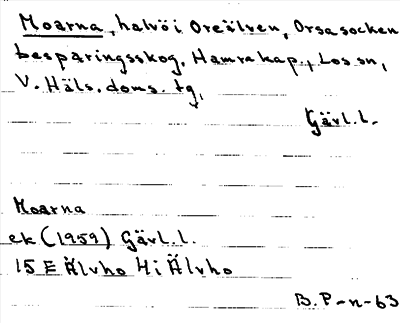 Moarna, halvö i Oreälven, Orsa socken
besparingsskog, Hamra kap., Los sn,
V. Häls. doms. tg,
Gävl. l.
Moarna
ek (1959) Gävl. l.
15 E Älvho 4 i Älvho
B. P-n-63